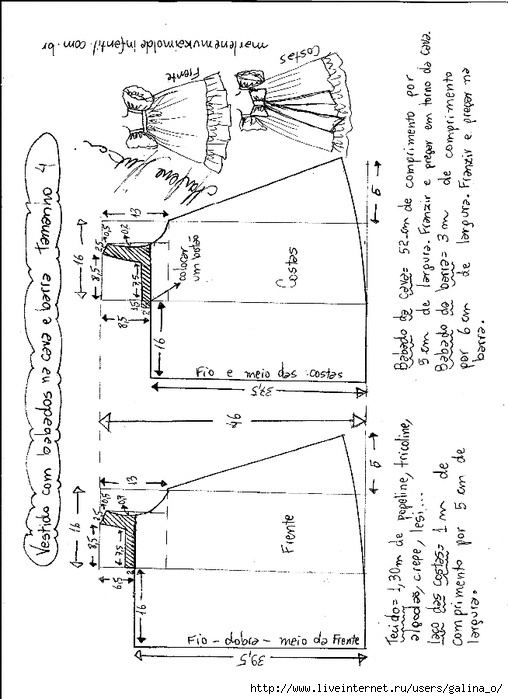 Vestido com babados na cava e barra Tamanho 4
marlenemukaimoldeinfantil.com.br
Frente
Costas
Marlene Mukai
16
8,5
3,5
0,5
0,7
13
7,5
6,5
2
16
Frente
Fio - dobra - meio da Frente
39,5
6
46
16
8,5
3,5
0,5
0,7
13
7,5
1,5
8,5
2
colocar
um botão
16
Costas
Fio e meio das costas
37,5
6
Tecido = 1,30m de popeline, tricoline,
algodão, crepe, lesi...
laço das costas = 1 m de
comprimento por 5 cm de
largura.
Babado da cava = 52 cm de comprimento por
5 cm de largura. Franzir e pregar em torno da cava.
Babado da barra = 3 m de comprimento
por 6 cm de largura. Franzir e pregar na
barra.
http://www.liveinternet.ru/users/galina_o/